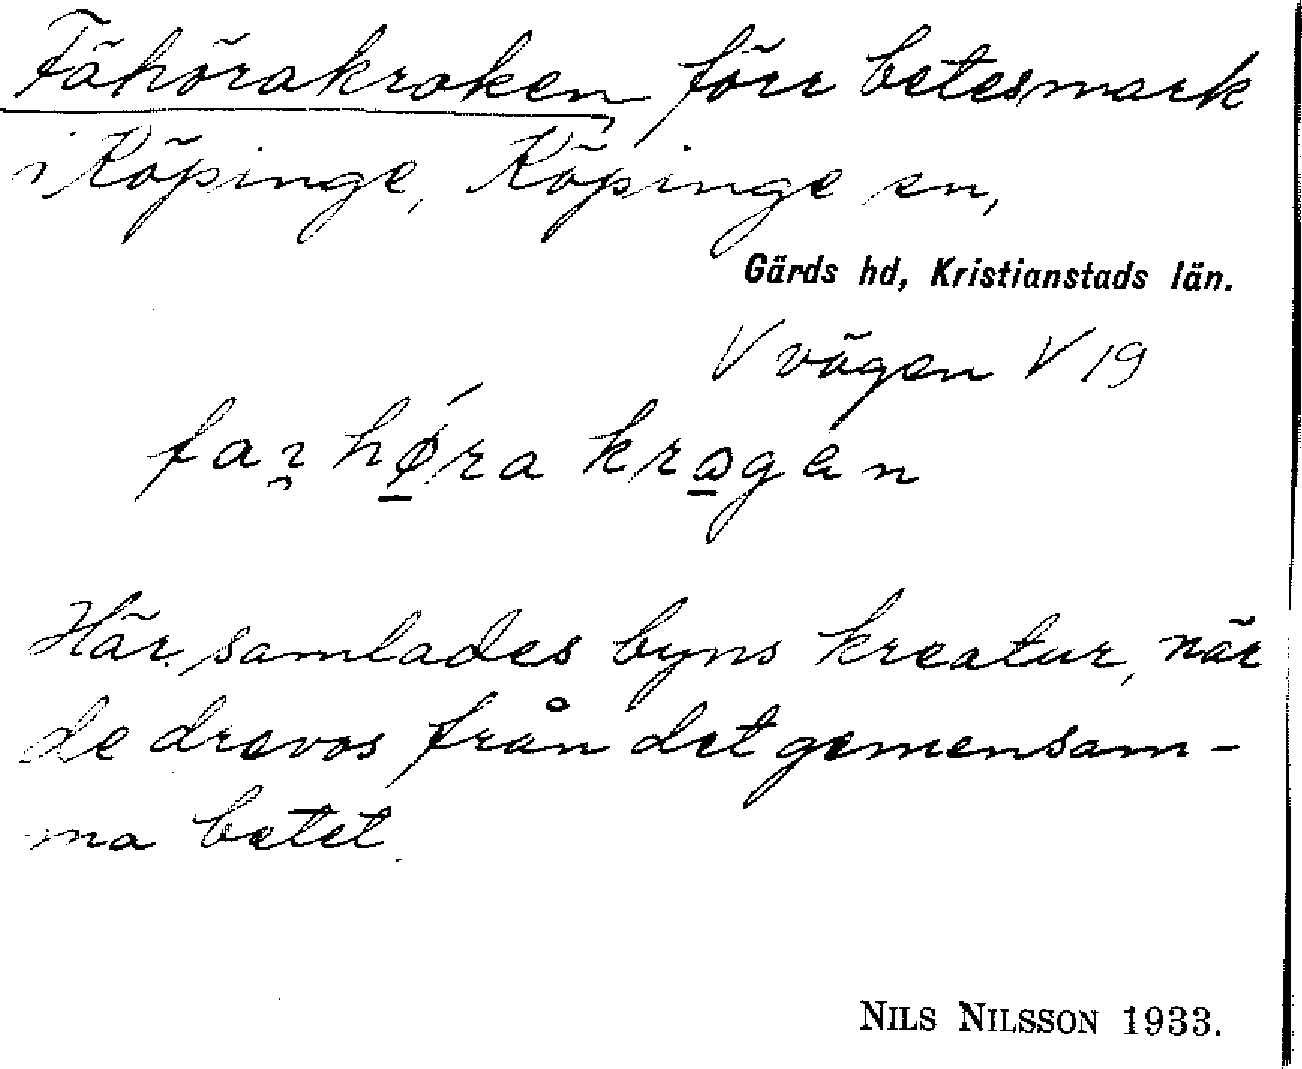 Fähörakroken, förr betesmark
i Köpinge, Köpinge sn,
Gärds hd, Kristianstads län.
V vägen V 19
Här samlades byns kreatur, när
de drevos från det gemensam-
ma betet.
NILS NILSSON 1933.